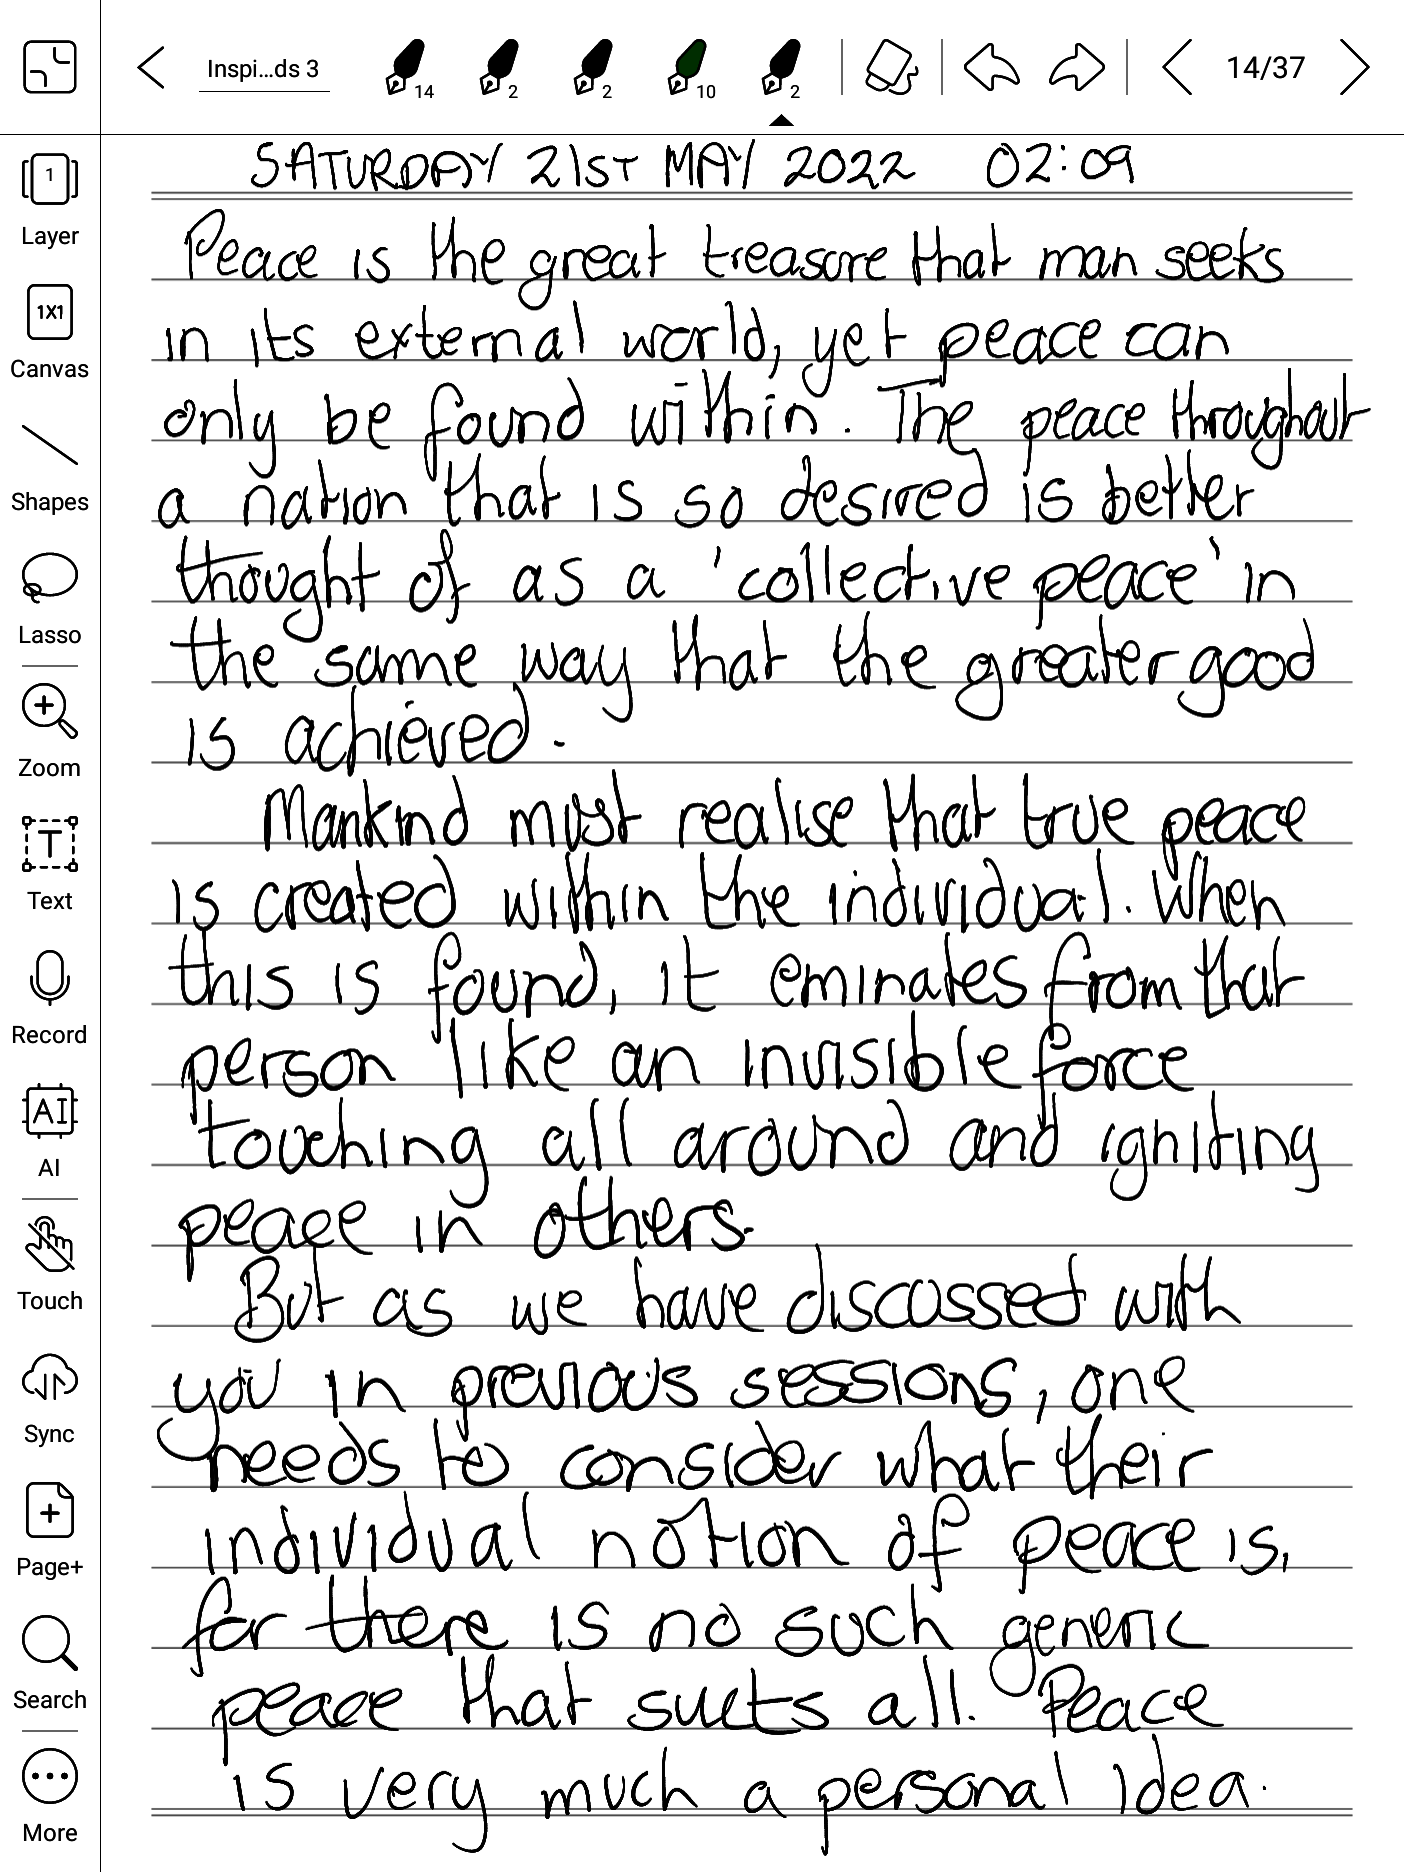 Inspi...ds 3
14
2
2
10
2
14/37
1
Layer
1X1
Canvas
Shapes
Lasso
Zoom
T
Text
Record
AI
AI
Touch
Sync
Page+
Search
More
SATURDAY 21ST MAY 2022 02:09
Peace is the great treasure that man seeks
in its external world, yet peace can
only be found within. The peace throughout
a nation that is so desired is better
thought of as a 'collective peace' in
the same way that the greater good
is achieved.
Mankind must realise that true peace
is created within the individual. When
this is found, it eminates from that
person like an invisible force
touching all around and igniting
peace in others.
But as we have discussed with
you in previous sessions, one
needs to consider what their
individual notion of peace is,
for there is no such generic
peace that suits all. Peace
is very much a personal idea.